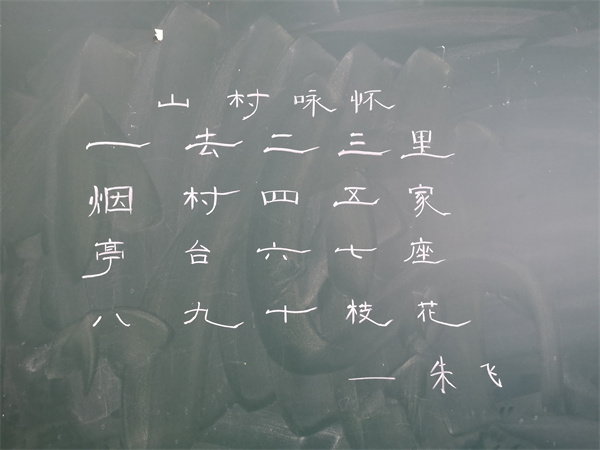 山村咏怀
一去二三里
烟村四五家
亭台六七座
八九十枝花
—朱飞